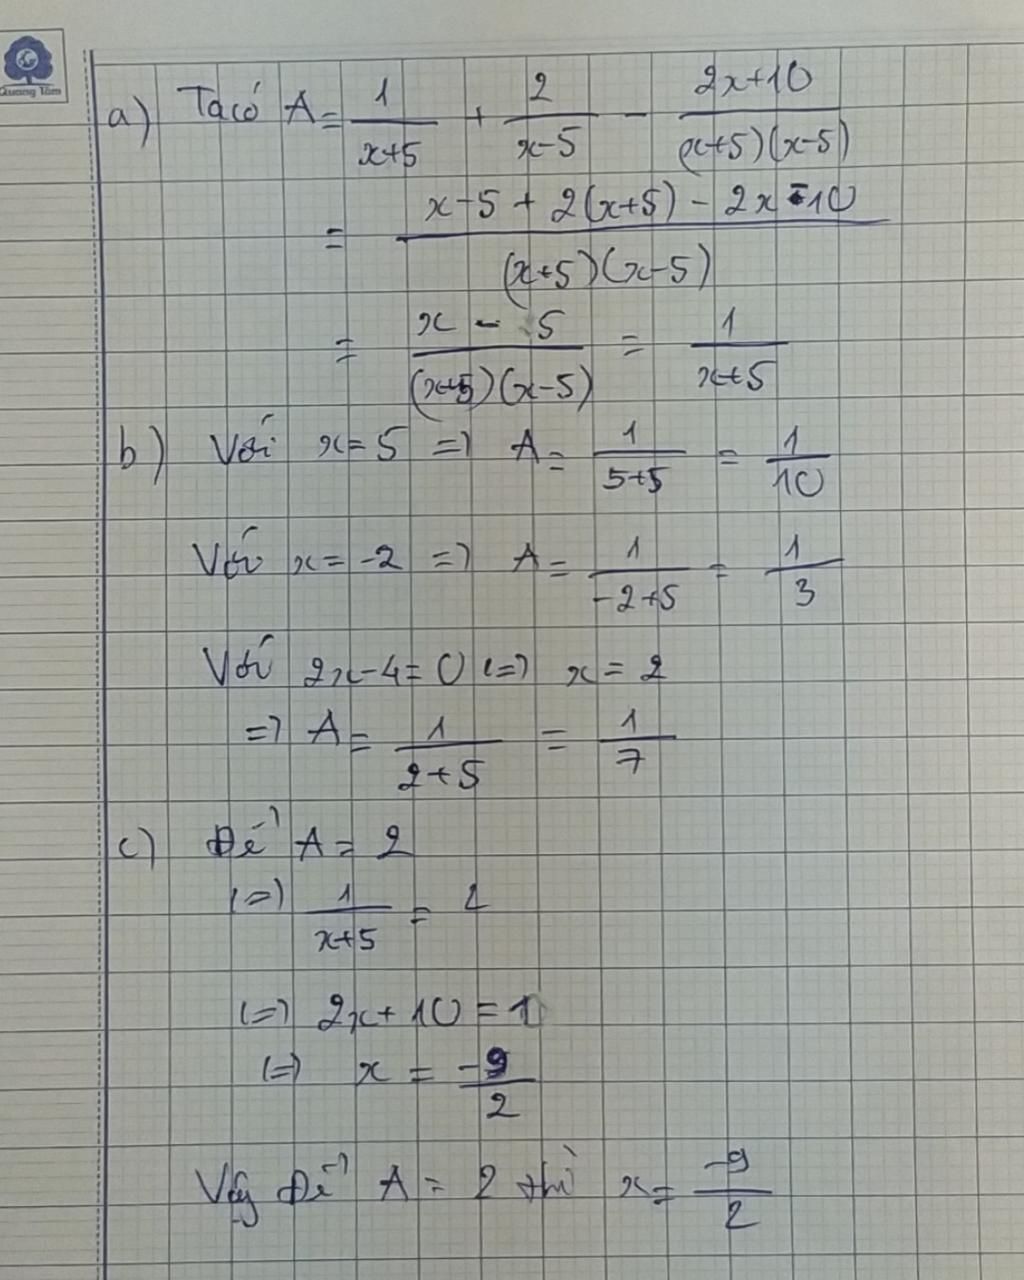 Quang Tâm
a) Ta có A = 1/(x+5) + 2/(x-5) - (2x+10)/((x+5)(x-5))
= (x-5+2(x+5)-2x-10)/((x+5)(x-5))
= (x-5)/((x+5)(x-5)) = 1/(x+5)
b) Với x=5 => A = 1/(5+5) = 1/10
Với x=-2 => A = 1/(-2+5) = 1/3
Với 2x-4=0 (=) x=2
=> A = 1/(2+5) = 1/7
c) Để A = 2
(=) 1/(x+5) = 2
(=) 2x+10=1
(=) x = -9/2
Vậy Để A = 2 thì x = -9/2